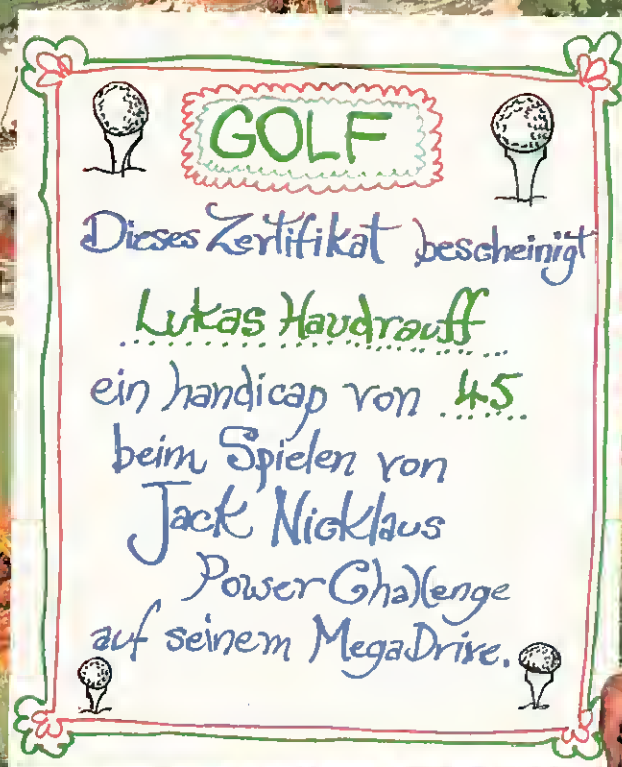 GOLF
Dieses Zertifikat bescheinigt
Lukas Haudrauff
ein handicap von 45
beim Spielen von
Jack Nicklaus
Power Challenge
auf seinem MegaDrive.